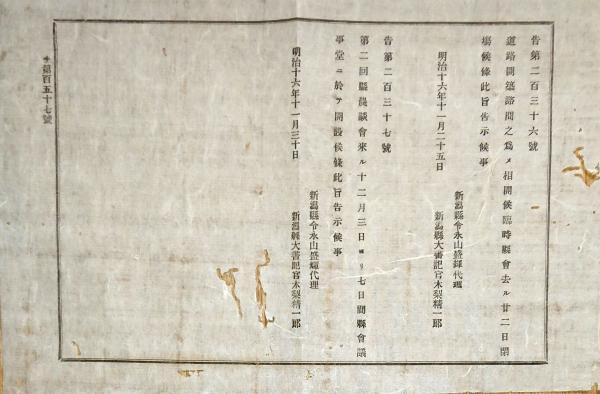 告第二百三十六號
道路開築諮問之爲メ相開候臨時縣會去ル廿二日閉
場候條此旨告示候事
明治十六年十一月二十五日
新潟縣令永山盛輝代理
新潟縣大書記官木梨精一郎
告第二百三十七號
第二回縣農談會來ル十二月三日ヨリ七日間縣會議
事堂ニ於テ開設候條此旨告示候事
明治十六年十一月三十日
新潟縣令永山盛輝代理
新潟縣大書記官木梨精一郎
サ第百五十七號